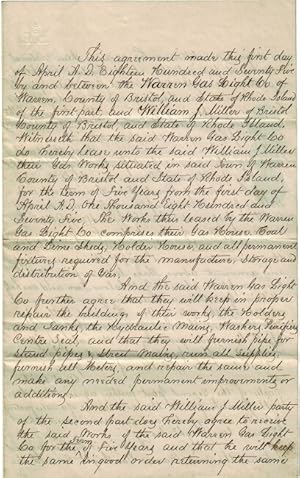 This agreement made this first day
of April A.D. Eighteen Hundred and Seventy Five
by and between the Warren Gas Light Co of
Warren, County of Bristol, and State of Rhode Island
of the first part and William J. Miller of Bristol
County of Bristol, and State of Rhode Island,
Witnesseth that the said Warren Gas Light Co
do hereby lease unto the said William J. Miller
their Gas Works situated in said Town of Warren
County of Bristol and State of Rhode Island,
for the term of Five Years from the first day of
April A.D. One Thousand Eight Hundred and
Seventy Five. The Works thus leased by the Warren
Gas Light Co comprises their Gas House, Coal
and Lime Sheds, Holder House, and all permanent
fixtures required for the manufacture, storage and
distribution of Gas.
And the said Warren Gas Light
Co further agree that they will keep in proper
repair the buildings of their works, the Holders
and Tanks, the Hydraulic Mains, Washers, Purifiers
Center Seal, and that they will furnish pipe for
stand pipes & Street Mains, run all supplies
furnish all Meters, and repair the same and
make any needed permanent improvements or
additions.
And the said William J. Miller party
of the second part does hereby agree to receive
the said Works of the said Warren Gas Light
Co for the term of Five Years and that he will keep
the same in good order returning the same